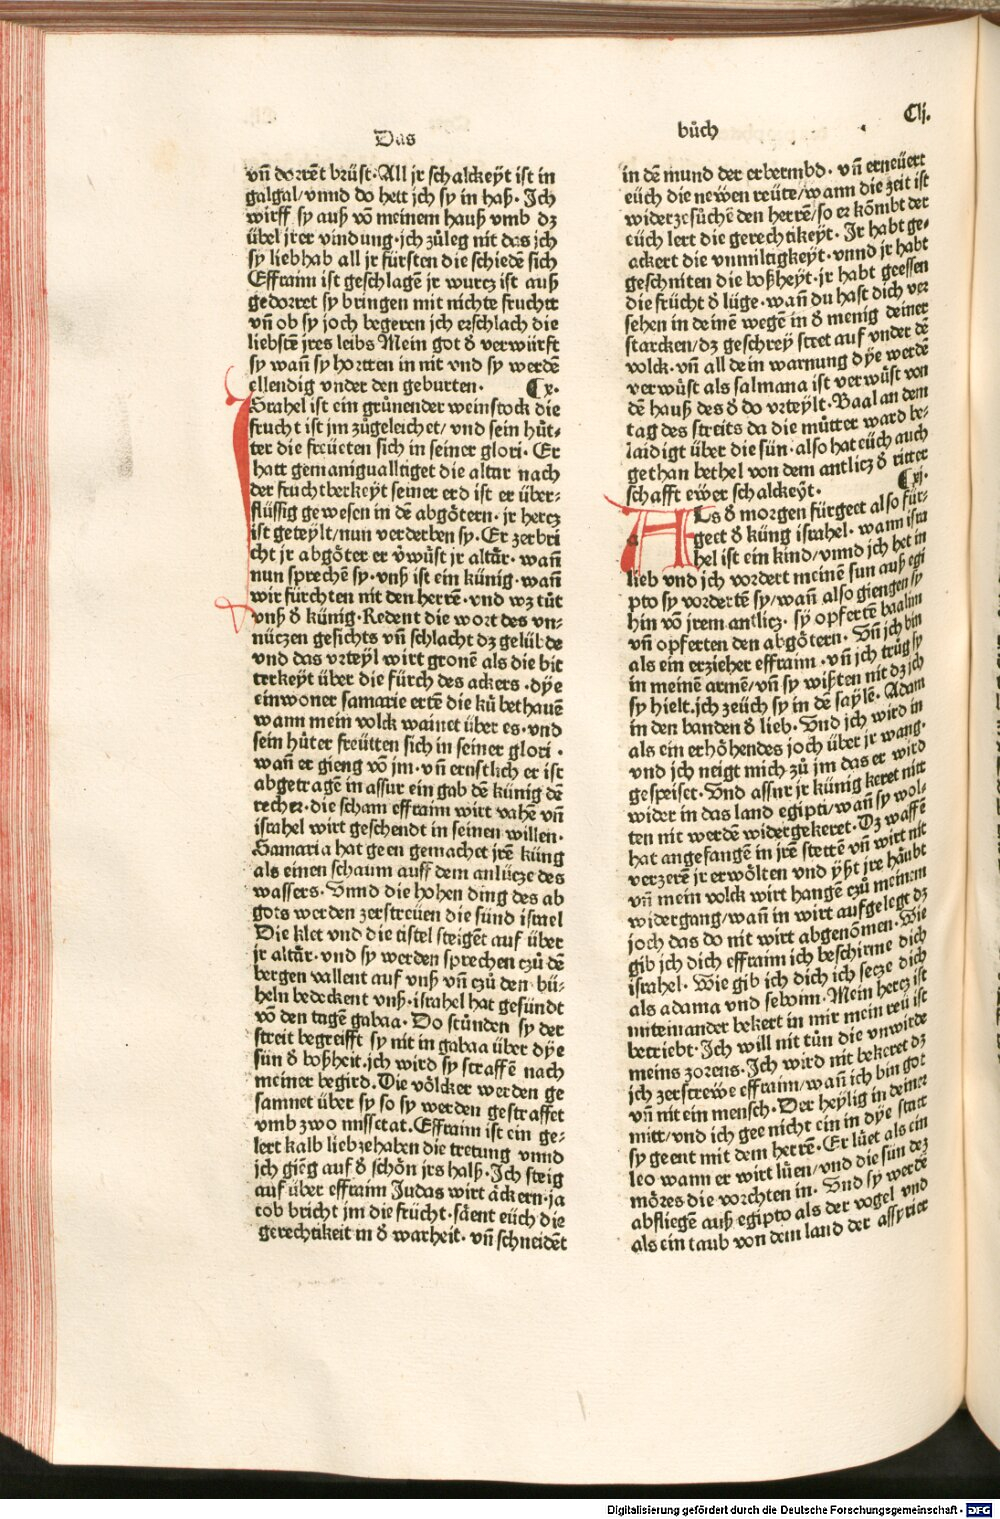 Clj.
Das bůch
vn̄ dorrēt brüst·All jr schalckeÿt ist in
galgal/vnnd do hett jch sy in haß· Jch
wirff sy auß vō meinem hauß vmb dz
übel jrer vindung·jch zůleg nit das jch
sy liebhab all jr fürsten die schiedē sich
Effraim ist geschlagē jr wurcz ist auß
gedorret sy bringen mit nichte fruchtt
vn̄ ob sy joch begeren jch erschlach die
liebstē jres leibs Mein got ď verwürft
sy wan̄ sy hortten in nit vnd sy werdē
ellendig vnder den geburten· ¶x·
Jsrahel ist ein grůnender weinstock die
frucht ist jm zůgeleichet/ vnd sein hůt⸗
ter die freüeten sich in seiner glori· Er
hatt gemanigualtiget die altar nach
der fruchtberkeyt seiner erd ist er über⸗
flüssig gewesen in dē abgötern· jr hercz
ist geteylt/nun verderben sy· Er zerbri
cht jr abgötter er v̓wůst jr altår· wan̄
nun sprechē sy·vnß ist ein künig· wan̄
wir fürchten nit den herrē·vnd wz tůt
vnß ď künig·Redent die wort des vn⸗
nüczen gesichts vn̄ schlacht dz gelübde
vnd das vrteÿl wirt gronē als die bit
terkeyt über die fürch des ackers·dÿe
einwoner samarie ertē die ků bethauē
wann mein volck wainet über es·vnd
sein hůter freütten sich in seiner glori·
wan̄ er gieng vō jm·vn̄ ernstlich er ist
abgetragē in assur ein gab dē künig dē
recher·die scham effraim wirt vahē vn̄
israhel wirt geschendt in seinen willen·
Samaria hat geen gemachet jrē küng
als einen schaum auff dem anlücze des
wassers·Vnnd die hohen ding des ab
gots werden zerstreüen die sünd israel
Die klet vnd die tistel steigēt auf über
jr altår·vnd sy werden sprechen czů dē
bergen vallent auf vnß vn̄ czů den bü⸗
heln bedeckent vnß·israhel hat gesündt
vō den tagē gabaa·Do stůnden sy der
streit begreifft sy nit in gabaa über dÿe
sün ď boßheit·jch wird sy straffē nach
meiner begird·Die völcker werden ge
samnet über sy so sy werden gestraffet
vmb zwo missetat·Effraim ist ein ge⸗
lert kalb liebzehaben die tretung vnnd
jch giēg auf ď schön jrs halß·Jch steig
auf über effraim Judas wirt äckern·ja
cob bricht jm die frücht·säent eüch die
gerechtikeit in ď warheit·vn̄ schneidēt
in dē mund der erbermbd·vn̄ erneüert
eüch die newen reüte/wann die zeit ist
widerzesůchē den herrē/so er kōmbt der
eüch lert die gerechtikeÿt· Jr habt ge⸗
ackert die vnmiltigkeÿt·vnnd jr habt
geschniten die boßheÿt·jr habt geessen
die frücht ď lüge·wan̄ du hast dich ver
sehen in deinē wegē in ď menig deiner
starcken/dz geschreÿ steet auf vnder dē
volck·vn̄ all dein warnung dÿe werdē
verwůst als salmana ist verwůst von
dē hauß des ď do vrteÿlt·Baal an dem
tag des streits da die můtter ward be⸗
laidigt über die sün·also hat eüch auch
gethan bethel von dem antlicz ď ritter
schafft ewer schalckeÿt· ¶xj·
ALs ď morgen fürgeet also für⸗
geet ď küng israhel·wann isra
hel ist ein kind/vnnd jch het in
lieb vnd jch vordert meinē sun auß egi
pto sy vordertē sy/wan̄ also giengen sy
hin vō jrem antlicz· sÿ opfertē baalim
vn̄ opferten den abgötern· Vn̄ jch bin
als ein erzieher effraim·vn̄ jch trůg sy
in meinē armē/vn̄ sy wißten nit dz jch
sy hielt·jch zeüch sy in dē saÿlē· Adam
in den banden ď lieb·Vnd jch wird in
als ein erhöhendes joch über jr wang·
vnd jch neigt mich zů jm das er wird
gespeiset·Vnd assur jr künig keret nitt
wider in das land egipti/wan̄ sy wol⸗
ten nit werdē widergekeret·Dz waffē
hat angefangē in jrē stettē vn̄ wirt nit
verzerē jr erwölten vnd ÿßt jre häubt
vn̄ mein volck wirt hangē czů meinem
widergang/wan̄ in wirt aufgelegt dz
joch das do nit wirt abgenōmen·Wie
gib jch dich effraim ich beschirme dich
israhel·Wie gib ich dich ich secze dich
als adama vnd seboim·Mein hercz ist
miteinander bekert in mir mein reü ist
betriebt·Jch will nit tůn die vnwirde
meins zorens·Jch wird nit bekeret dz
jch zerstrewe effraim/wan̄ ich bin got
vn̄ nit ein mensch·Der heÿlig in deiner
mitt/vnd ich gee nicht ein in dÿe statt
sy geent mit dem herrē·Er lůet als ein
leo wann er wirt lůen/vnd die sün dez
möres die vorchten in· Vnd sy werdē
abfliegē auß egipto als der vogel vnd
als ein taub von dem land der assyrier
Digitalisierung gefördert durch die Deutsche Forschungsgemeinschaft · DFG